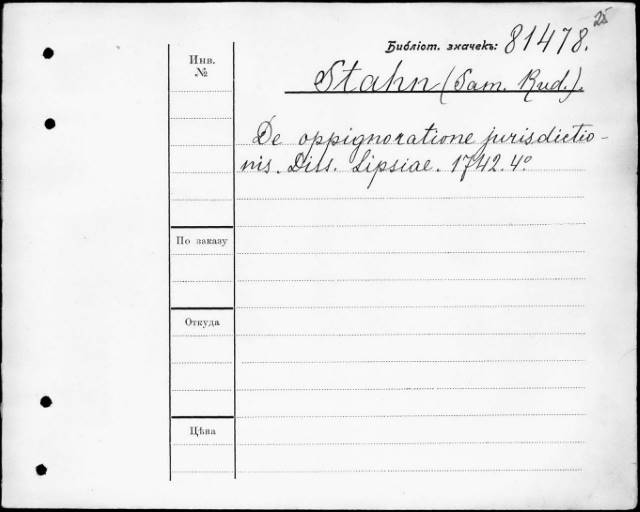 25
Библіот. значекъ: 81478.
Инв. №
Stahn (Sam. Rud.).
De oppignoratione jurisdictio-
nis. Diss. Lipsiae. 1742. 4º
По заказу
Откуда
Цѣна